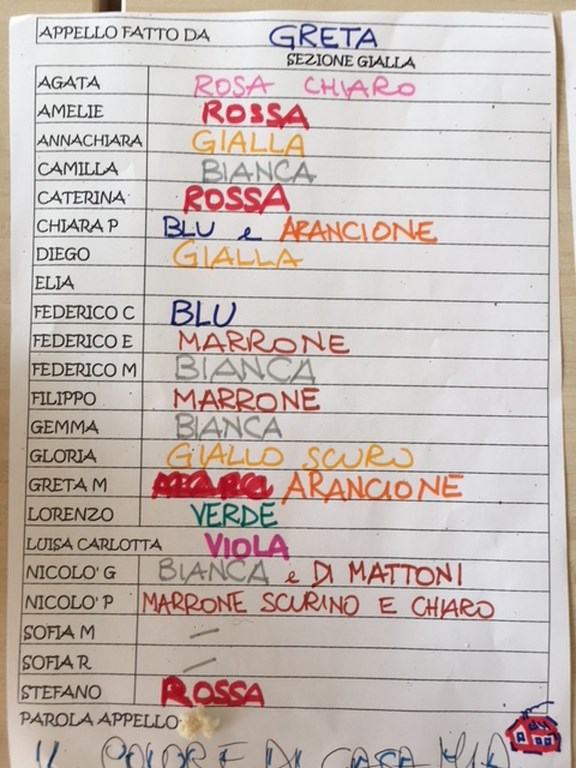 APPELLO FATTO DA GRETA
SEZIONE GIALLA
AGATA ROSA CHIARO
AMELIE ROSSA
ANNACHIARA GIALLA
CAMILLA BIANCA
CATERINA ROSSA
CHIARA P BLU e ARANCIONE
DIEGO GIALLA
ELIA
FEDERICO C BLU
FEDERICO E MARRONE
FEDERICO M BIANCA
FILIPPO MARRONE
GEMMA BIANCA
GLORIA GIALLO SCURO
GRETA M ARANCIONE
LORENZO VERDE
LUISA CARLOTTA VIOLA
NICOLO' G BIANCA e DI MATTONI
NICOLO' P MARRONE SCURINO E CHIARO
SOFIA M —
SOFIA R —
STEFANO ROSSA
PAROLA APPELLO
IL COLORE DI CASA MIA